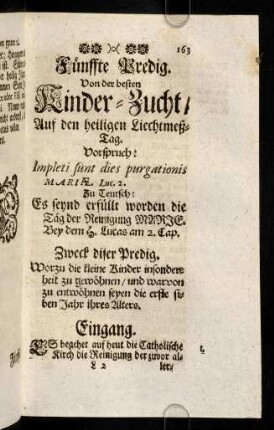 163
Fünffte Predig.
Von der besten
Kinder-Zucht/
Auf den heiligen Liechtmeß-
Tag.
Vorspruch:
Impleti sunt dies purgationis
MARIÆ. Luc. 2.
Zu Teutsch:
Es seynd erfüllt worden die
Täg der Reinigung MARIE.
Bey dem H. Lucas am 2. Cap.
Zweck diser Predig.
Worzu die kleine Kinder insonder-
heit zu gewöhnen/ und warvon
zu entwöhnen seyen die erste si-
ben Jahr ihres Alters.
Eingang.
ES begehet auf heut die Catholische
Kirch die Reinigung der zuvor al-
L 2 ler-